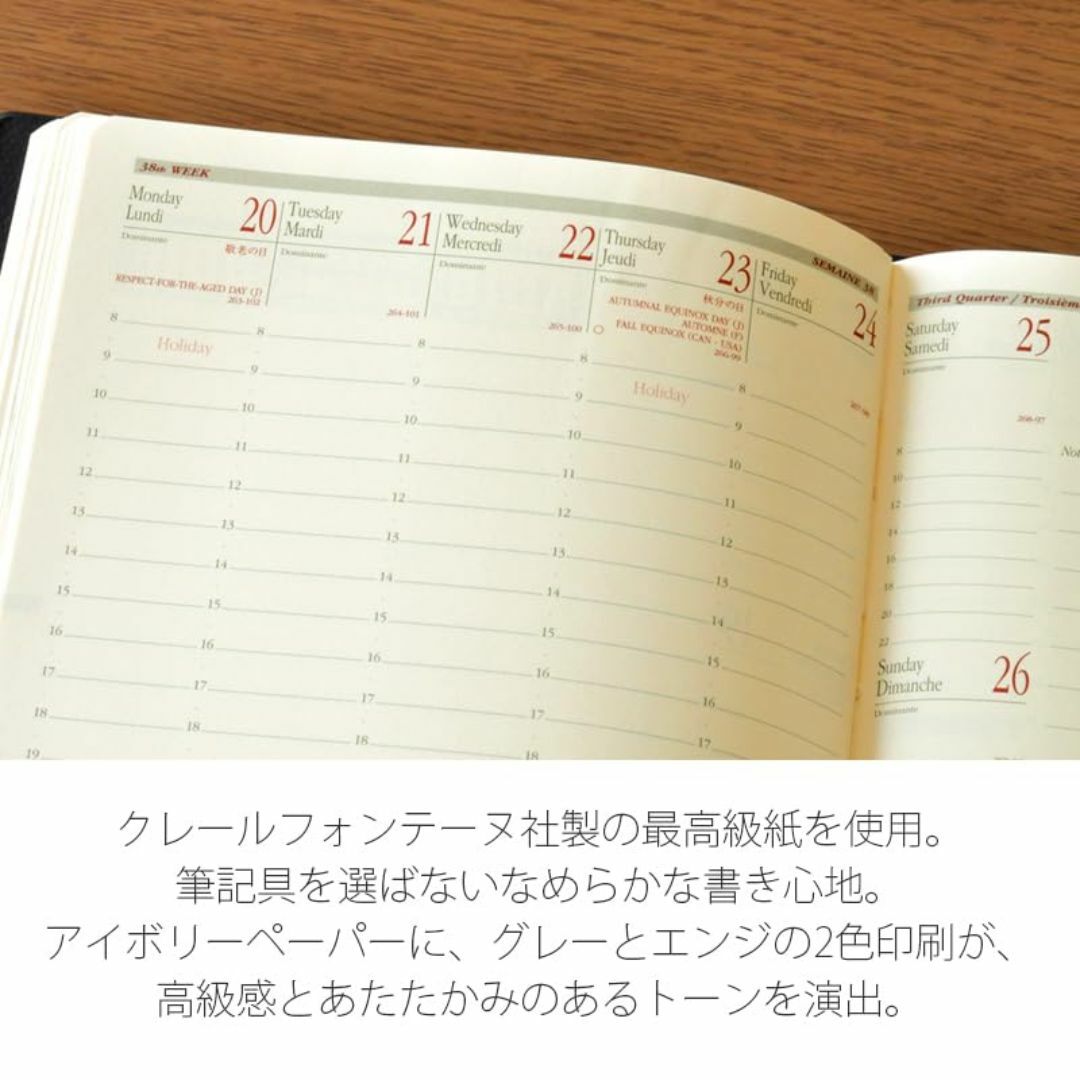 38th WEEK
SEMAINE 38
Monday
Lundi
20
Dominante
敬老の日
RESPECT-FOR-THE-AGED DAY (J)
263-102
Tuesday
Mardi
21
Dominante
264-101
Wednesday
Mercredi
22
Dominante
265-100
Thursday
Jeudi
23
Dominante
秋分の日
AUTUMNAL EQUINOX DAY (J)
AUTOMNE (F)
FALL EQUINOX (CAN - USA)
266-99
Friday
Vendredi
24
Dominante
8
Holiday
9
10
11
12
13
14
15
16
17
18
19
8
9
10
11
12
13
14
15
16
17
18
8
9
10
11
12
13
14
15
16
17
18
8
9
10
11
12
13
14
15
16
17
18
Holiday
8
9
10
11
12
13
14
15
16
17
Third Quarter / Troisièm
Saturday
Samedi
25
Dominante
268-97
8
10
12
14
16
18
20
22
Not
Sunday
Dimanche
26
Dominante
クレールフォンテーヌ社製の最高級紙を使用。
筆記具を選ばないなめらかな書き心地。
アイボリーペーパーに、グレーとエンジの2色印刷が、
高級感とあたたかみのあるトーンを演出。